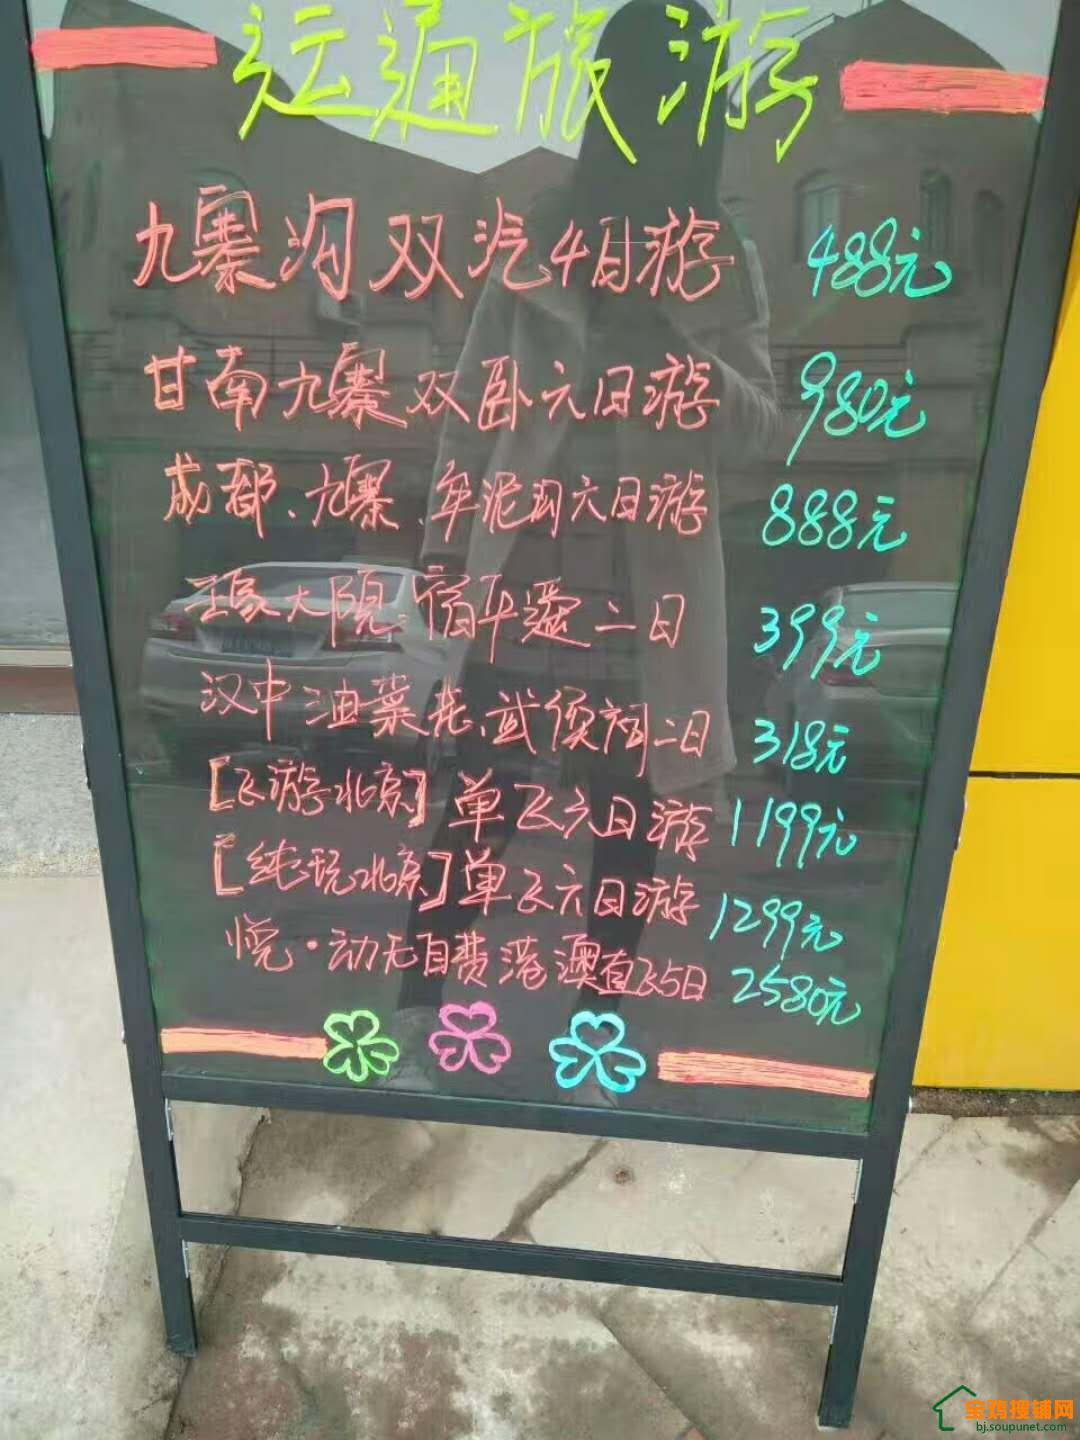 运通旅游
九寨沟双汽4日游 488元
甘南九寨双卧六日游 980元
成都、九寨、牟泥沟六日游 888元
王家大院、宿平遥二日 399元
汉中油菜花、武侯祠二日 318元
[飞游北京]单飞六日游 1199元
[纯玩北京]单飞六日游 1299元
悦·动无自费港澳直飞5日 2580元
宝鸡搜铺网
bj.soupunet.com